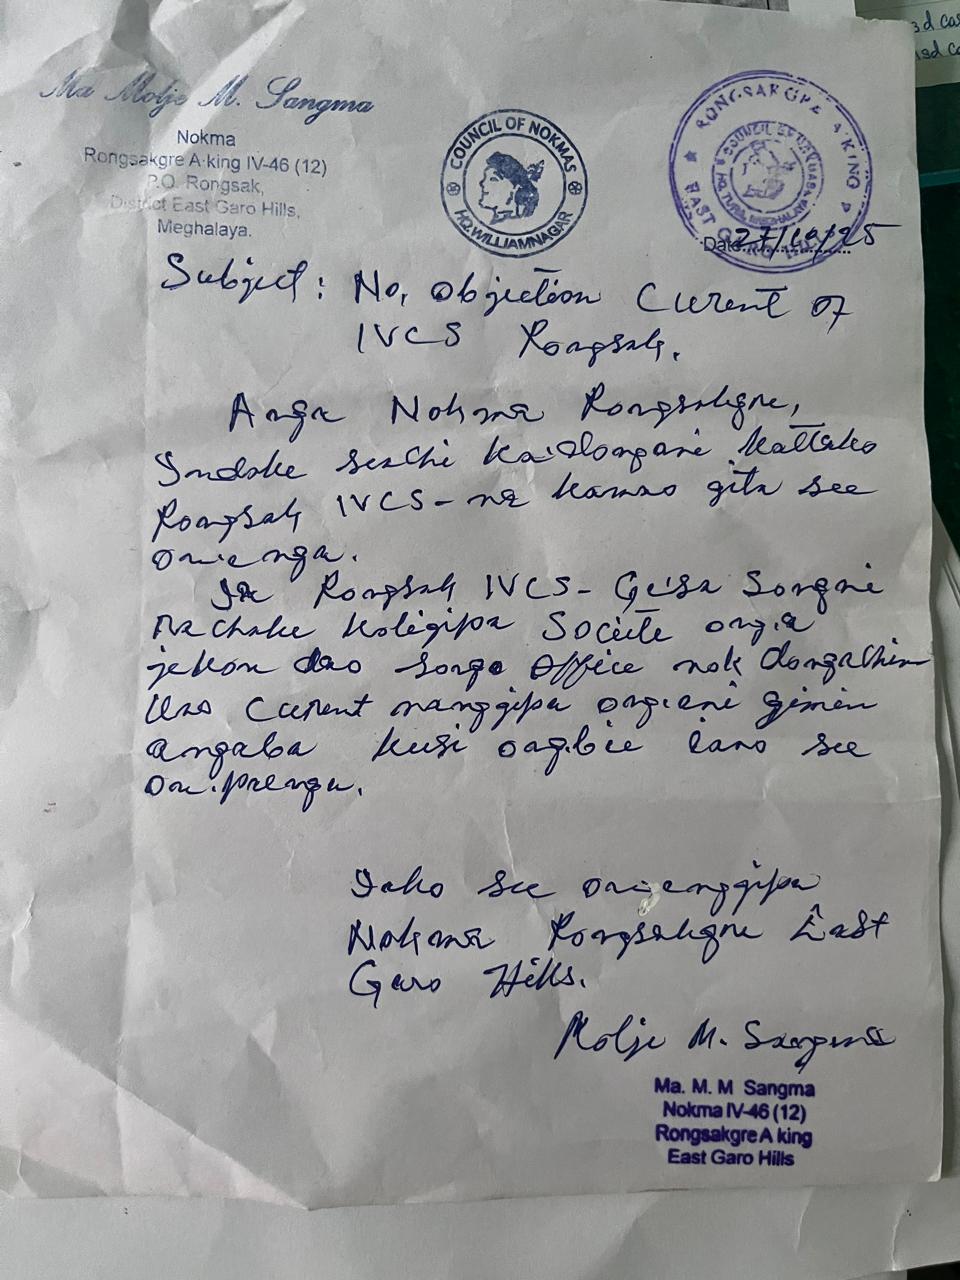 Ma Molje M. Sangma
Nokma
Rongsakgre A·king IV-46 (12)
P.O. Rongsak,
District East Garo Hills,
Meghalaya.
COUNCIL OF NOKMAS
HQ. WILLIAMNAGAR
RONGSAKGRE A·KING
EAST GARO
COUNCIL OF NOKMAS
TURA, MEGHALAYA
Date 27/10/25
Subject: No, objection Curent of
IVCS Rongsak.
Anga Nokma Rongsakgre,
Indake seachi ka·dongani kattako
Rongsak IVCS-na kamao gita see
on·enga.
Ia Rongsak IVCS- Gisa Songni
machake koligipa Sociite ong·a
jekon dao songo office nok dongachim
Uno Curent nanggipa ong·ani gimin
angaba kusi ong·bie iano see
on·prenga.
Iako see on·enggipa
Nokma Rongsakgre East
Garo Hills.
Molje M. Sangma
Ma. M. M Sangma
Nokma IV-46 (12)
Rongsakgre A king
East Garo Hills